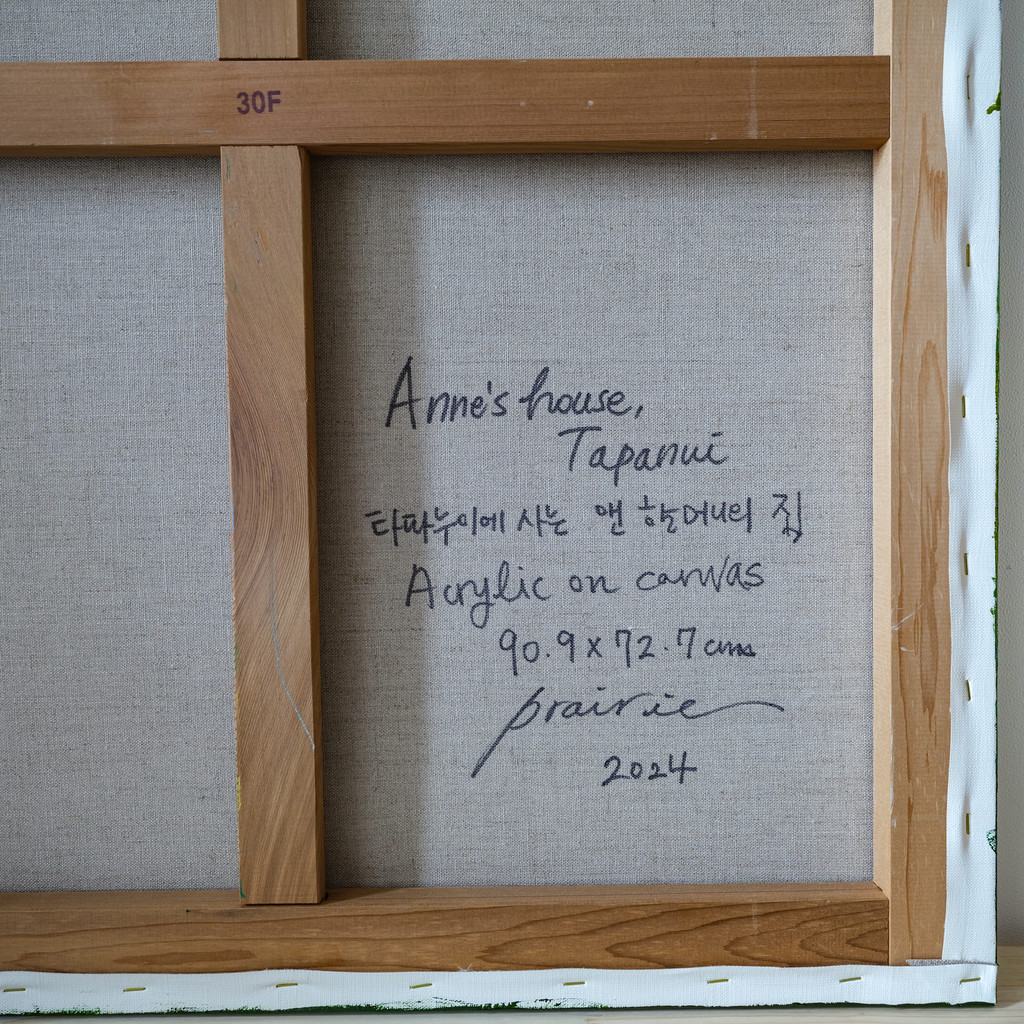 30F
Anne's house,
Tapanui
타파누이에 사는 앤 할머니의 집
Acrylic on canvas
90.9 x 72.7 cms
prairie
2024